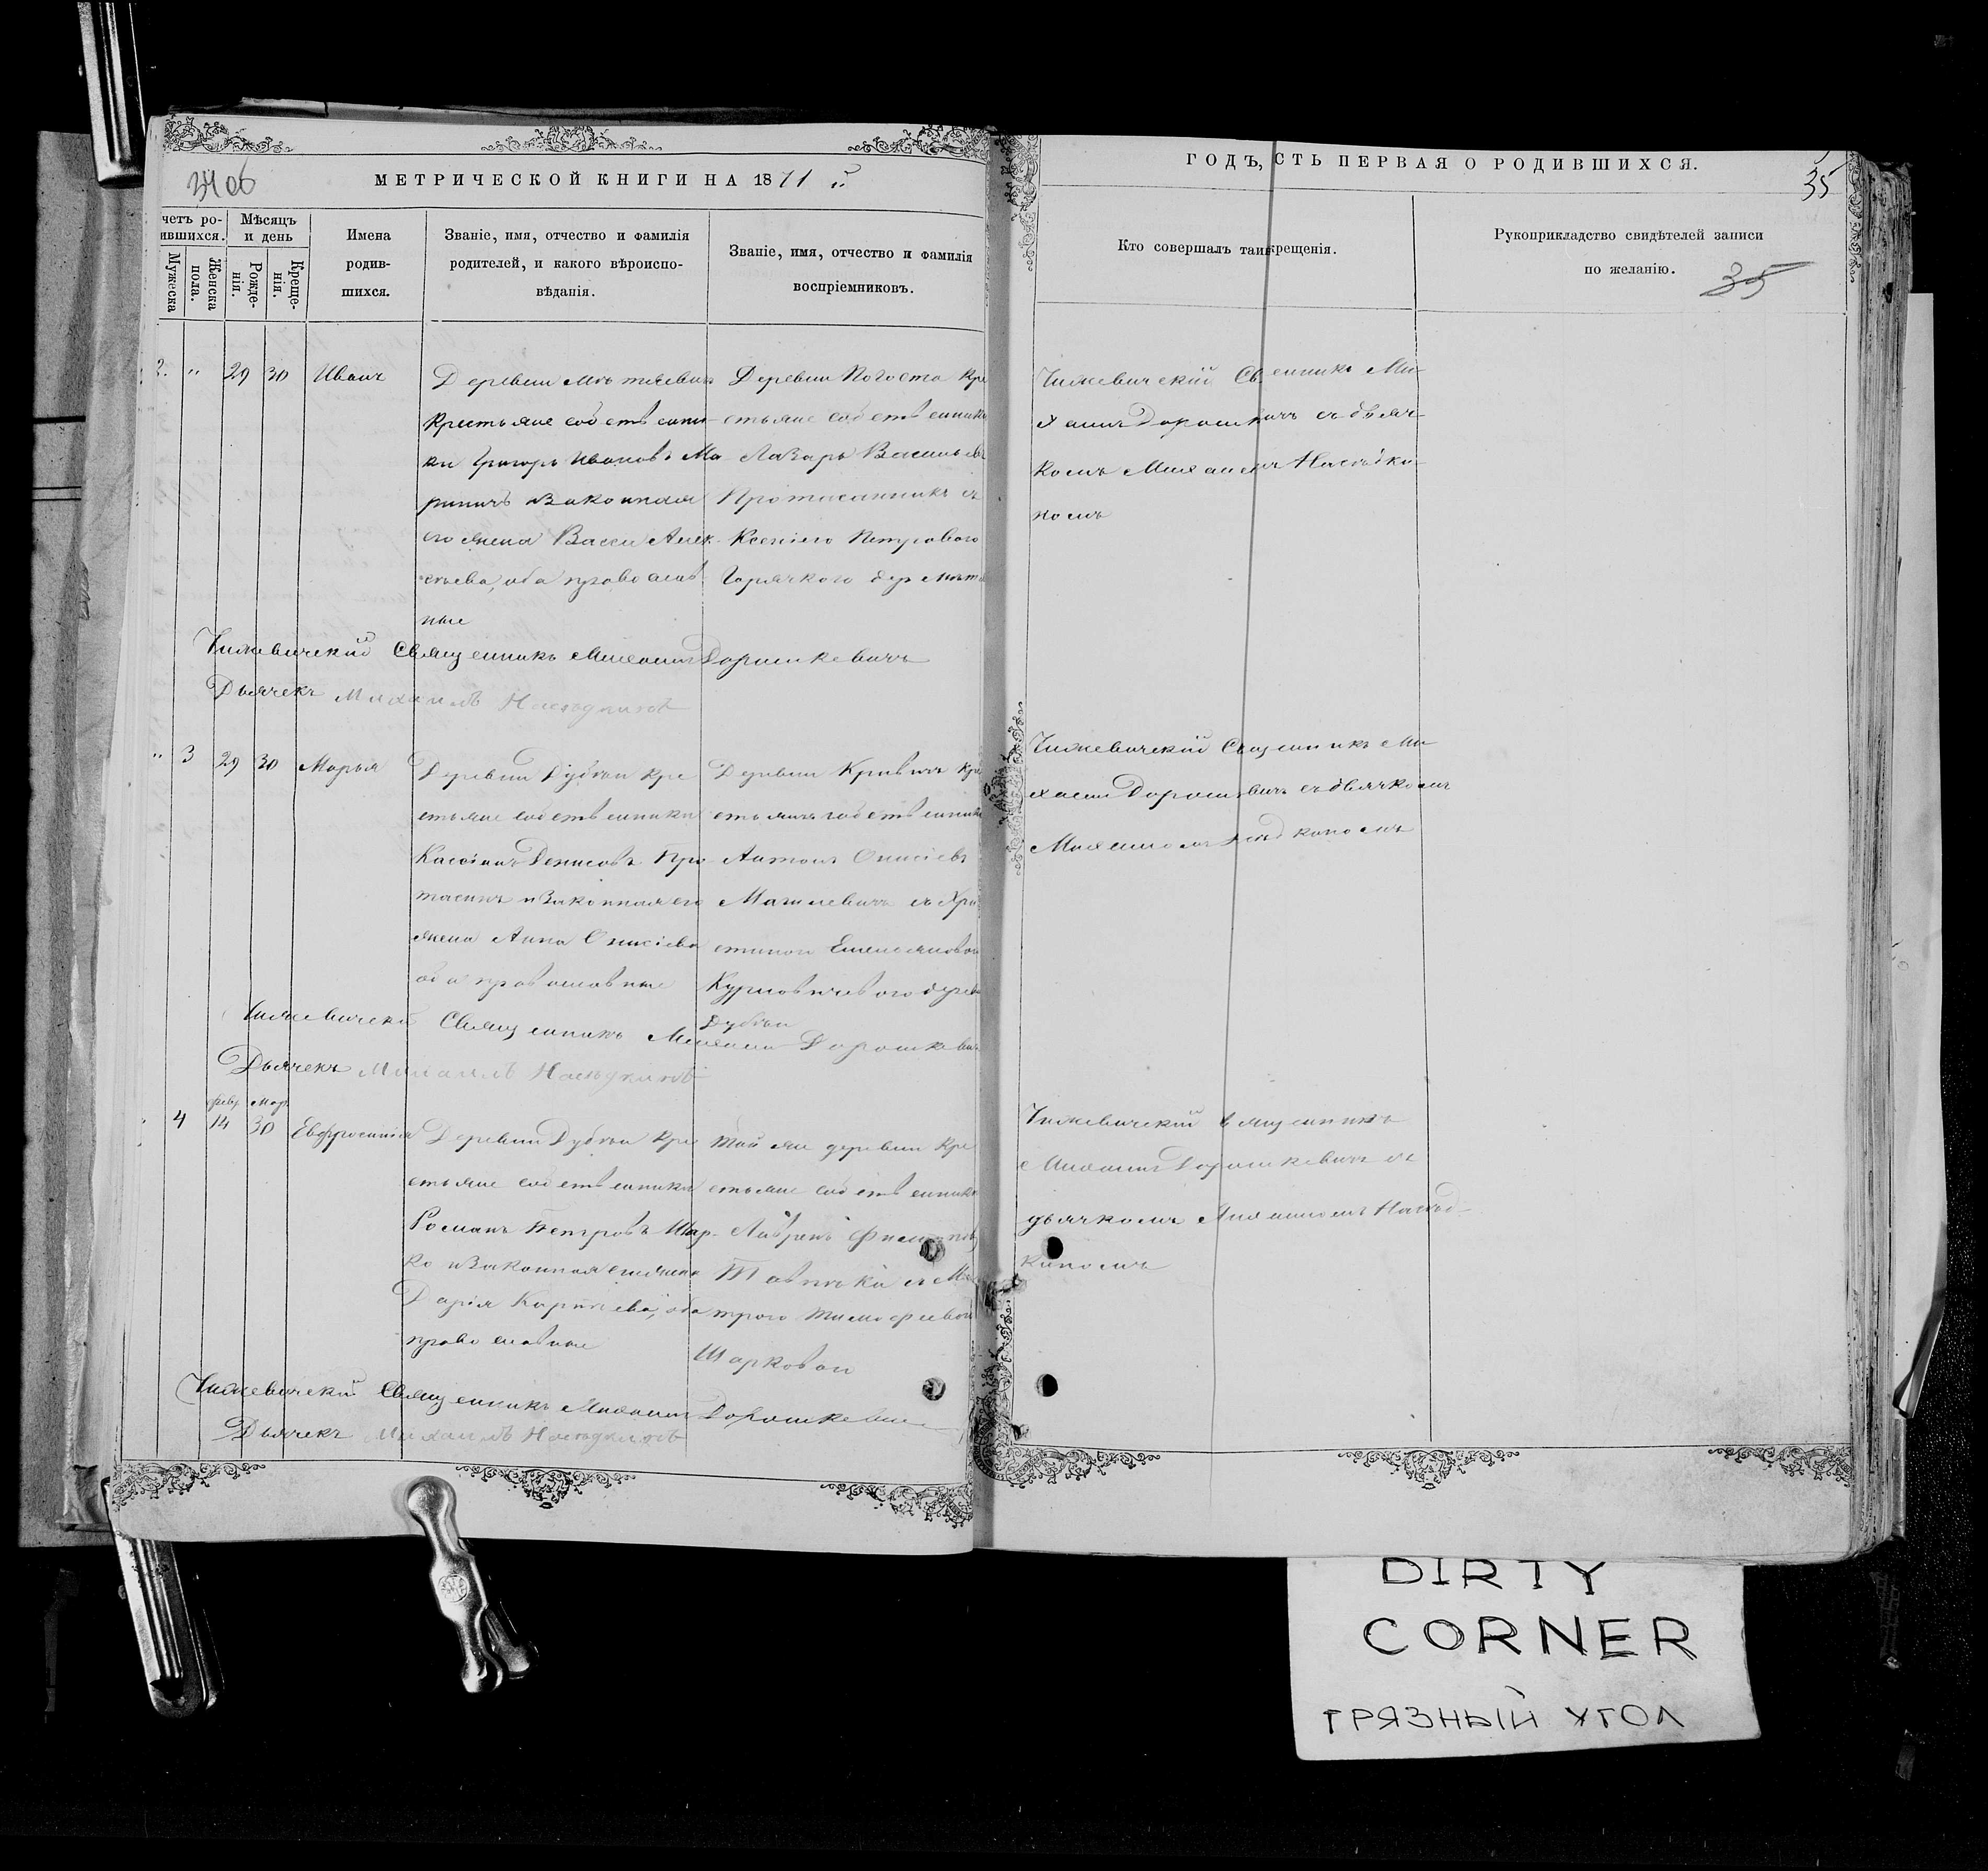 3406
МЕТРИЧЕСКОЙ КНИГИ НА 1871 й
ГОДЪ, СТЬ ПЕРВАЯ О РОДИВШИХСЯ.
35
четъ ро-
ившихся.
Мужеска
Женска
пола.
Мѣсяцъ
и день
Рожде-
нія.
Креще-
нія.
Имена
родив-
шихся.
Званіе, имя, отчество и фамилія
родителей, и какого вѣроиспо-
вѣданія.
Званіе, имя, отчество и фамилія
воспріемниковъ.
Кто совершалъ таин крещенія.
Рукоприкладство свидѣтелей записи
по желанію.
35
2. " 29 30 Иванъ
Деревни
крестьяне собственни-
ки Григорь Ивановъ Ма-
ричъ и законная
его жена Васса Алек-
сѣева, оба православ-
ные
Деревни Погоста кре
стьяне собственники
Лазарь Васильевъ
съ
Ксеніею Петровою
дер
Чижевичскій Св енникъ Ми-
хаилъ Дорош вичъ съ дьяч-
комъ Михаиломъ Наслѣдки-
номъ
Чижевичскій Священникъ Михаилъ Дорошкевичъ
Дьячекъ Михаилъ Наслѣдкиновъ
" 3 29 30 Марья
Деревни Дубѣи кре
стьяне собственники
Кассіанъ Денисовъ Про
тасикъ и законная его
жена Анна Онисіева
оба православные
Деревни Кривичъ кре
стьянъ собственник
Антонъ Онисіевъ
Мачулевичъ съ Хри
стиною Емельяновою
дерев
Дубѣи
Чижевичскій Священникъ Ми-
хаилъ Дорош вичъ съ дьячкомъ
Михаиломъ слѣдкиномъ
Чижевичскій Священникъ Михаилъ Дорошкевичъ
Дьячекъ Михаилъ Наслѣдкиновъ
4
февр. Мар.
14 30 Евфросинія
Деревни Дубѣи кре
стьяне собственники
Романъ Петровъ Шар-
ко и законная его жена
Дарія оба
православные
Той же деревни кре
стьяне собственники
съ Ма
трою Тимофеевою
Шарковой
Чижевичскій вященникъ
Михаилъ Дорошкевичъ съ
дьячкомъ Михаиломъ Наслѣд-
киномъ
Чижевичскій Священникъ Михаилъ Дорошкевичъ
Дьячекъ Михаилъ Наслѣдкиновъ
DIRTY
CORNER
ГРЯЗНЫЙ УГОЛ